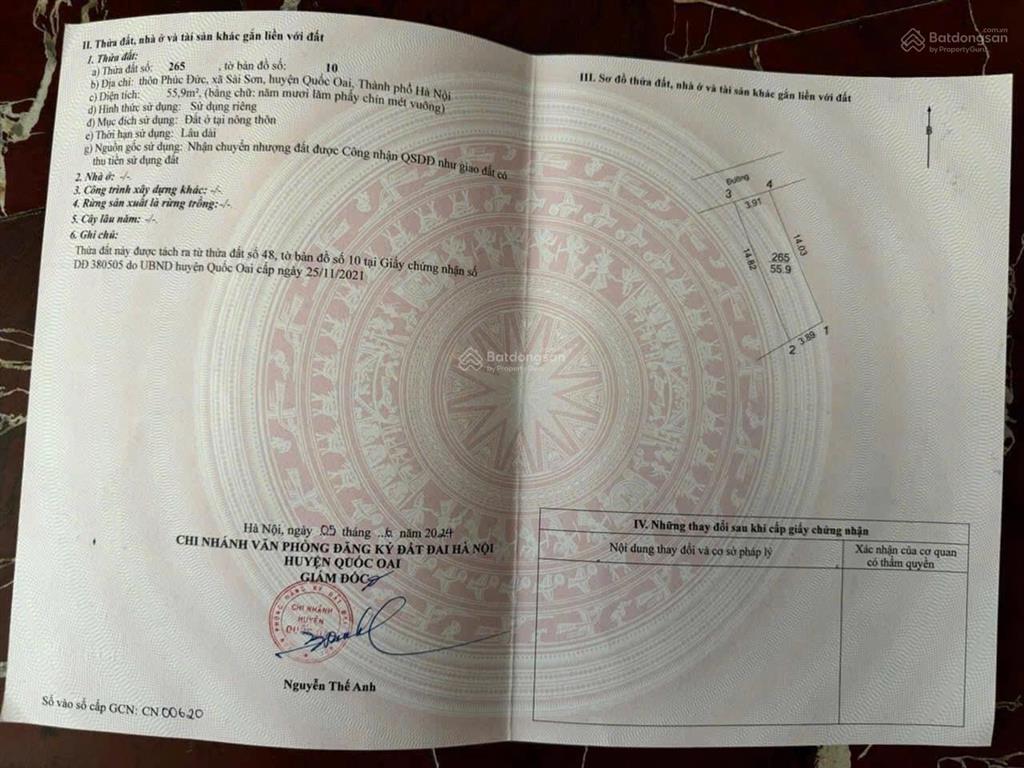 II. Thửa đất, nhà ở và tài sản khác gắn liền với đất
1. Thửa đất:
a) Thửa đất số: 265 , tờ bản đồ số: 10
b) Địa chỉ: thôn Phúc Đức, xã Sài Sơn, huyện Quốc Oai, Thành phố Hà Nội
c) Diện tích: 55,9m², (bằng chữ: năm mươi lăm phẩy chín mét vuông)
d) Hình thức sử dụng: Sử dụng riêng
đ) Mục đích sử dụng: Đất ở tại nông thôn
e) Thời hạn sử dụng: Lâu dài
g) Nguồn gốc sử dụng: Nhận chuyển nhượng đất được Công nhận QSDĐ như giao đất có
thu tiền sử dụng đất
2. Nhà ở: -/-
3. Công trình xây dựng khác: -/-
4. Rừng sản xuất là rừng trồng: -/-
5. Cây lâu năm: -/-
6. Ghi chú:
Thửa đất này được tách ra từ thửa đất số 48, tờ bản đồ số 10 tại Giấy chứng nhận số
DĐ 380505 do UBND huyện Quốc Oai cấp ngày 25/11/2021
Hà Nội, ngày 05 tháng 6 năm 2024
CHI NHÁNH VĂN PHÒNG ĐĂNG KÝ ĐẤT ĐAI HÀ NỘI
HUYỆN QUỐC OAI
GIÁM ĐỐC
CHI NHÁNH
HUYỆN
Nguyễn Thế Anh
Số vào sổ cấp GCN: CN 00620
III. Sơ đồ thửa đất, nhà ở và tài sản khác gắn liền với đất
B
Đường
3 4
3.91
14.82
14.03
265
55.9
3.89
2 1
IV. Những thay đổi sau khi cấp giấy chứng nhận
Nội dung thay đổi và cơ sở pháp lý
Xác nhận của cơ quan
có thẩm quyền
Batdongsan.com.vn
by PropertyGuru
Batdongsan
by PropertyGuru